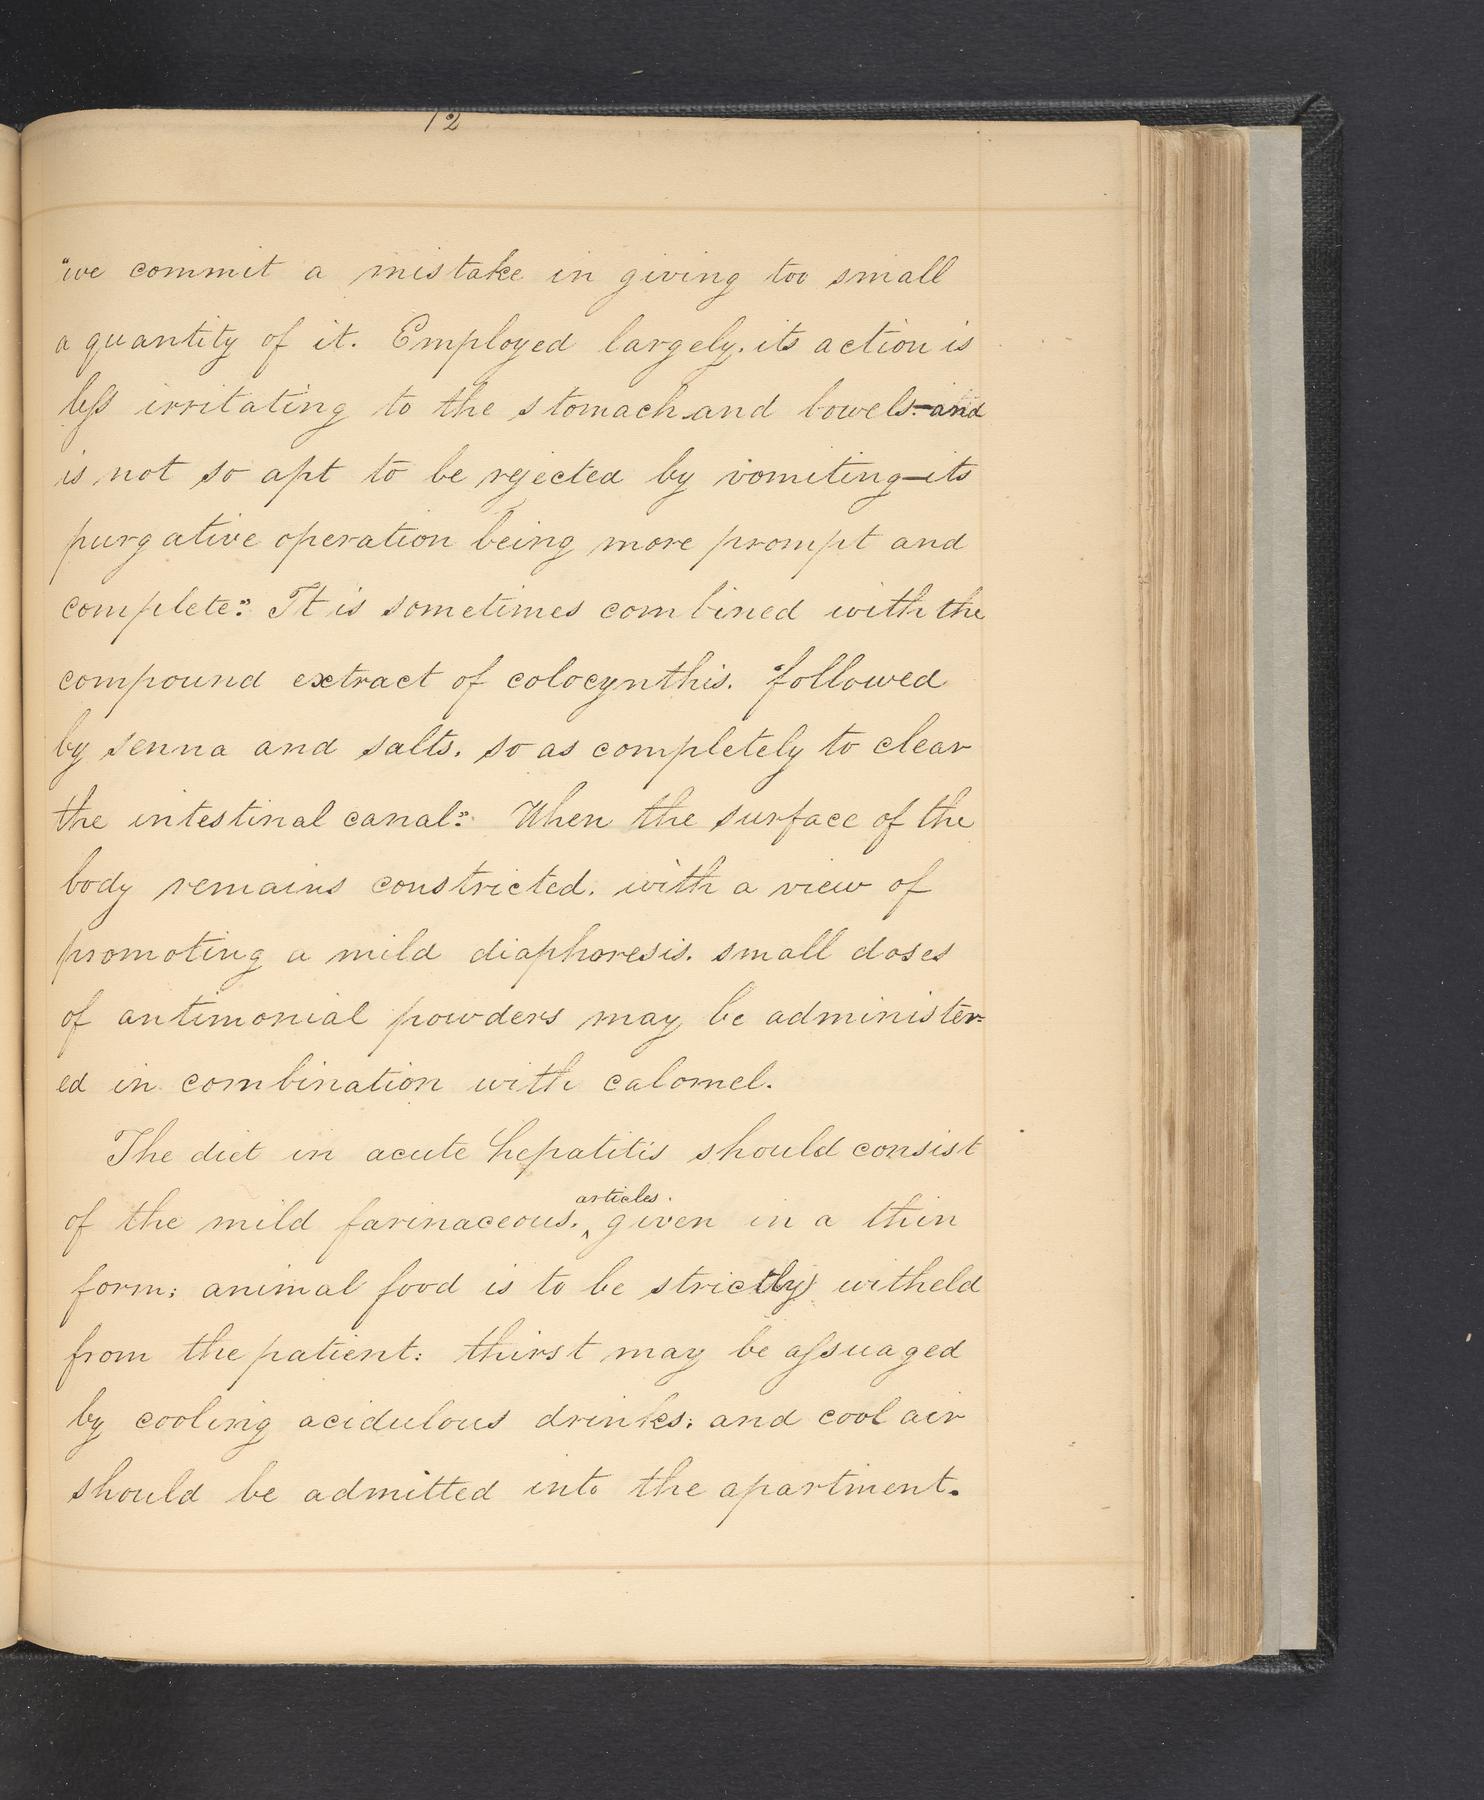 12
"we commit a mistake in giving too small
a quantity of it. Employed largely, its action is
less irritating to the stomach and bowels—and
is not so apt to be rejected by vomiting—its
purgative operation being more prompt and
complete." It is sometimes combined with the
compound extract of colocynthis. "followed
by senna and salts, so as completely to clear
the intestinal canal." When the surface of the
body remains constricted, with a view of
promoting a mild diaphoresis, small doses
of antimonial powders may be administer-
ed in combination with calomel.
The diet in acute hepatitis should consist
of the mild farinaceous, articles. given in a thin
form; animal food is to be strictly witheld
from the patient: thirst may be assuaged
by cooling acidulous drinks; and cool air
should be admitted into the apartment.